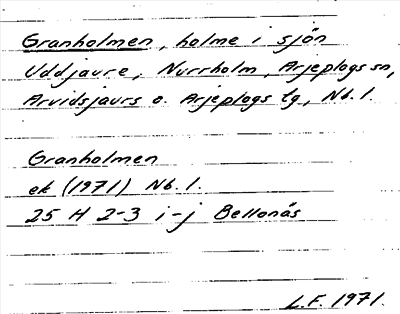 Granholmen, holme i sjön
Uddjaure, Norrholm, Arjeplogs sn,
Arvidsjaurs o. Arjeplogs tg, Nb. l.
Granholmen
ek (1971) Nb. l.
25 H 2-3 i-j Bellonäs
L.F. 1971.